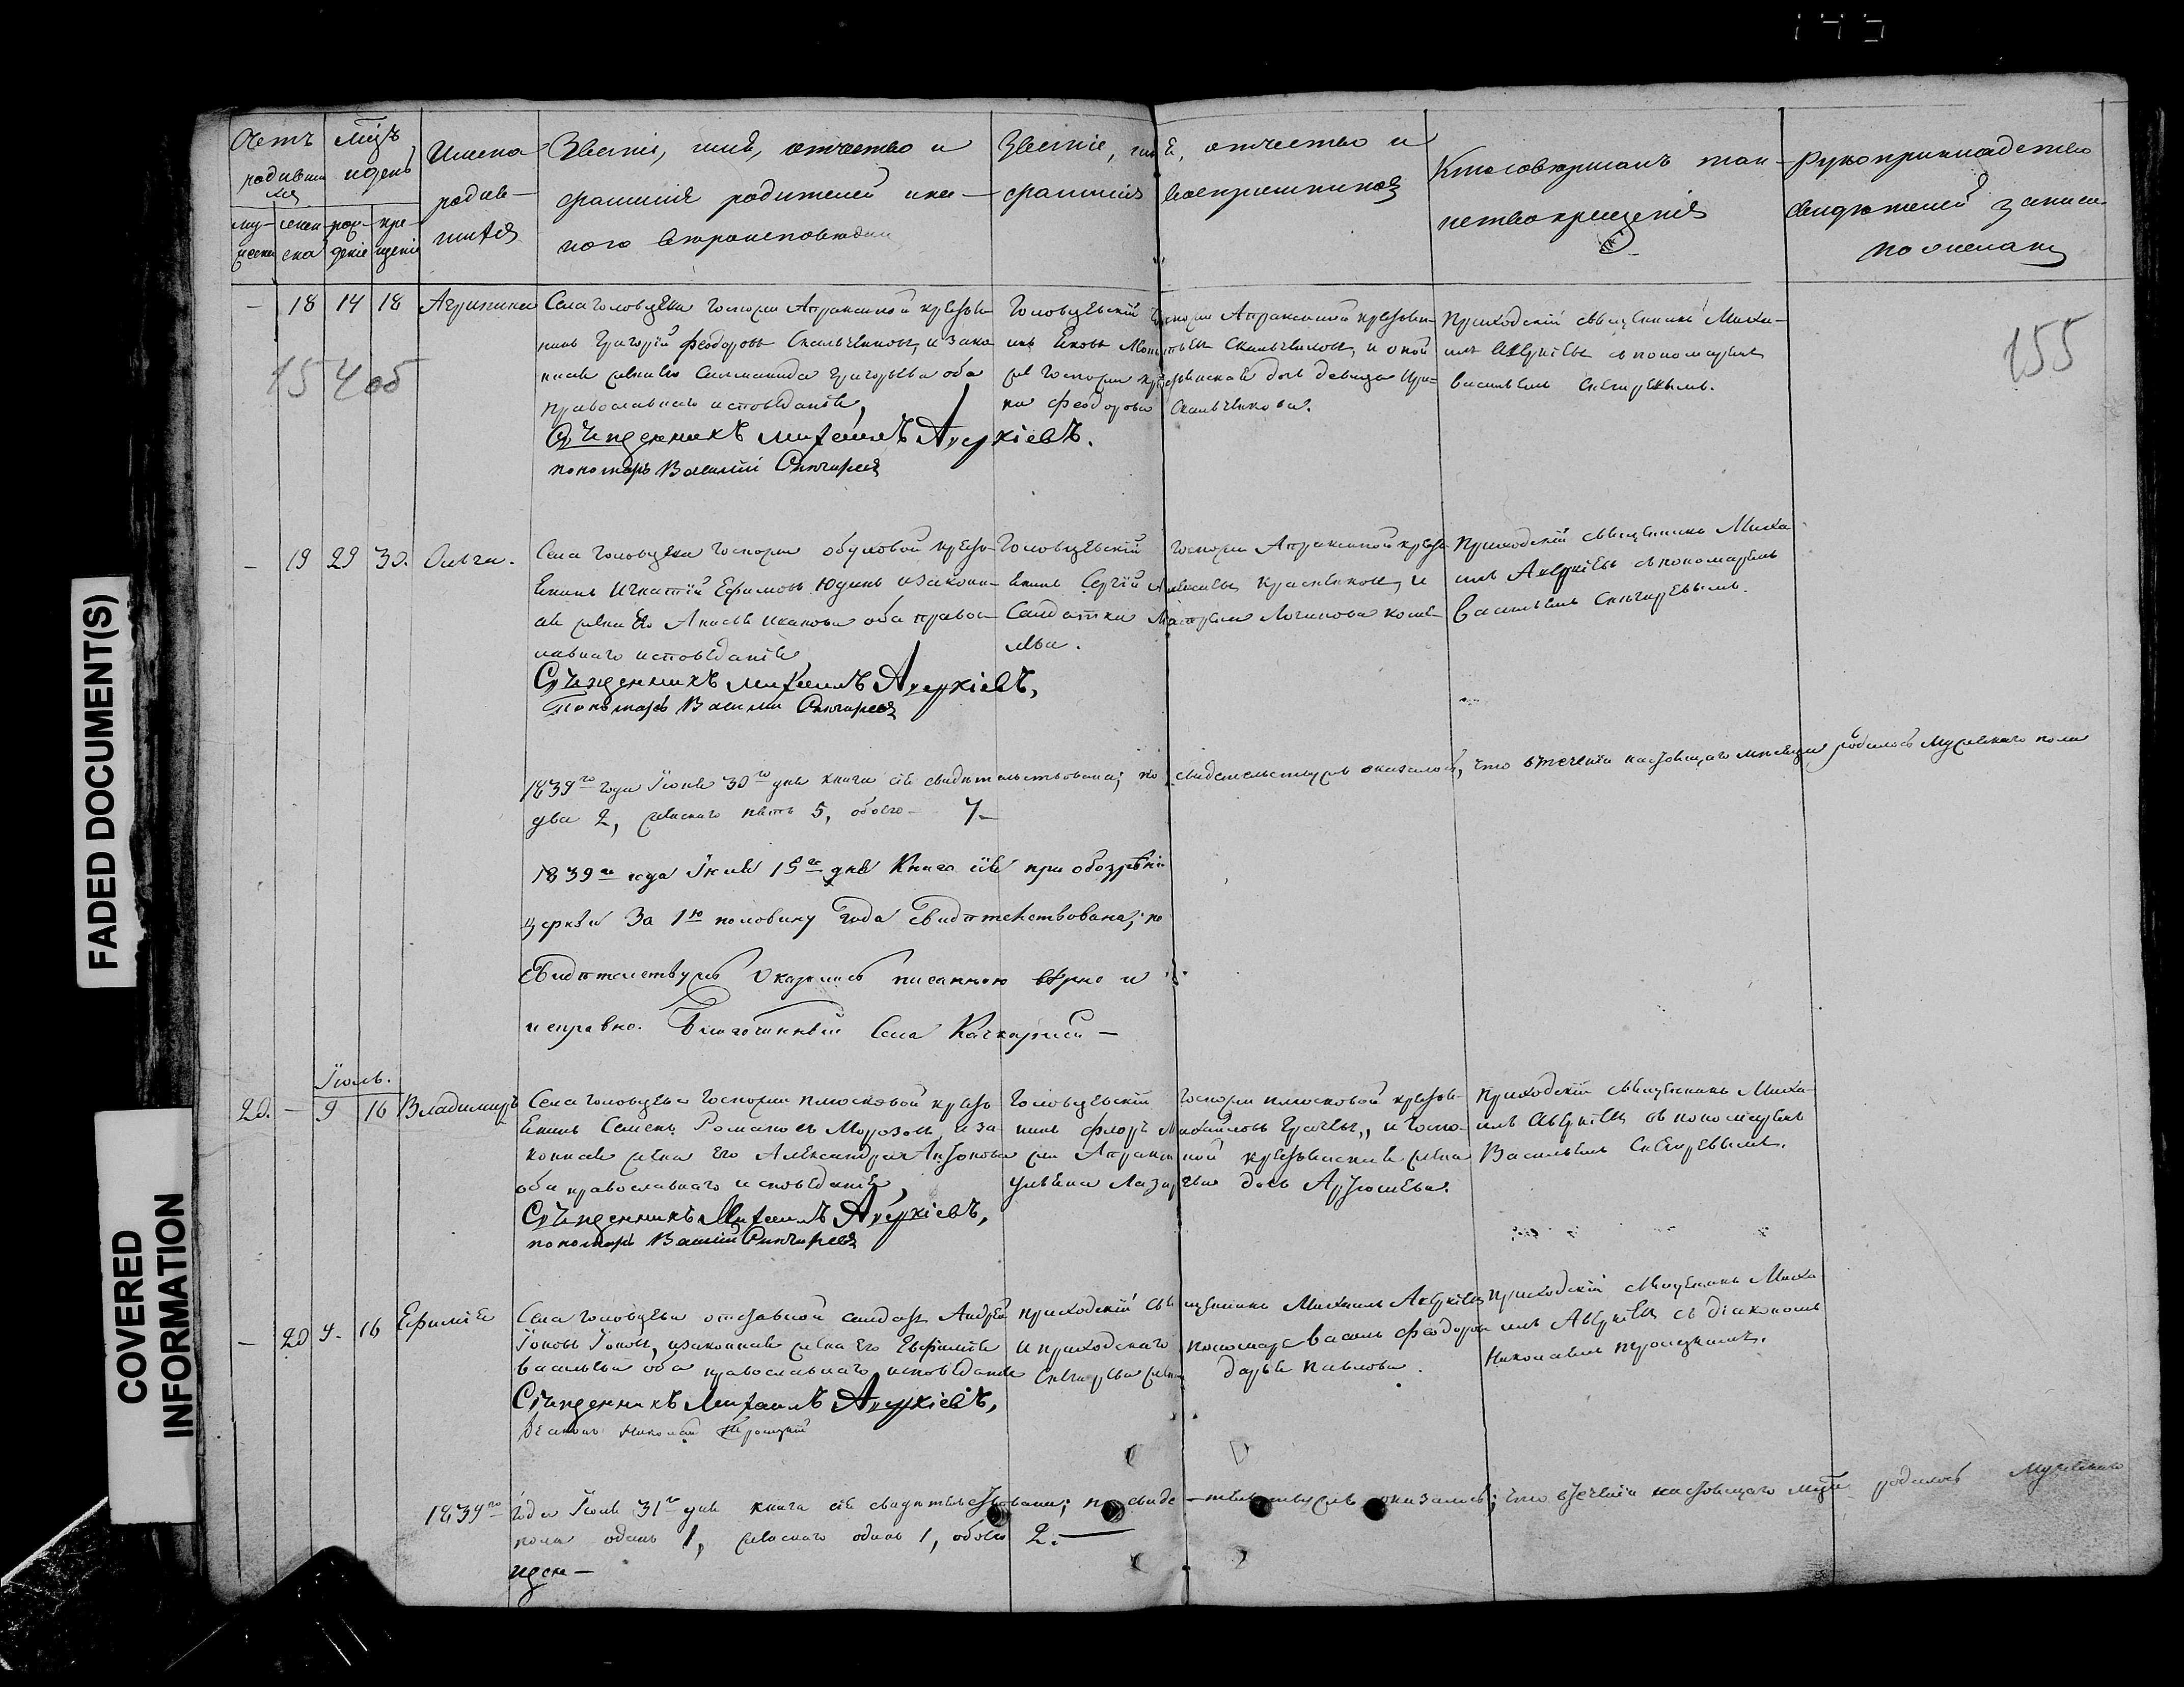 Счетъ
родивших
ся
мцъ
и день
Имена
родив-
шихся
Званіе, имя, отчество и
фамилія родителей и ка-
кого вѣроисповеданія
Званіе, имя, отчество и
фамилія воспріемниковъ
Кто совершалъ таи-
нство крещенія
Рукоприкладство
свидѣтелей записи
по желанію
муж-
ска
жен-
ска
рож-
деніе
кре-
щеніе
- 18 14 18
Агрипина
Села Головцева Госпожи Апраксиной крестья-
нинъ Григорій Феодоровъ Скальченковъ, и зако-
нная жена его Григорьева оба
православнаго исповѣданія,
Священникъ Михаилъ Аверкіевъ.
пономарь Василій Снегиревъ
Головцевскій Госпожи Апраксиной крестья-
нъ Скальченковъ, и оной
же Госпожи крестьянская дочь девица Ири-
на Феодорова Скальченкова.
Приходскій священникъ Миха-
илъ Авѳркіевъ съ пономаремъ
Васильемъ Снегиревымъ.
154 об
155
- 19 29 30.
Ольга.
Села Головцева Госпожи Обуховой кресть-
янинъ Игнатій Ефимовъ Юдинъ и законн-
ая жена его Анисья Иванова оба правос-
лавнаго исповѣданія
Священникъ Михаилъ Аверкіевъ,
Пономарь Василій Снегиревъ
Головцевскій Госпожи Апраксиной кресть-
янинъ Сергій Алексіевъ и
Солдатка Матрена Логинова
Приходскій священникъ Миха
илъ Аверкіевъ съ пономаремъ
Васильемъ Снегиревымъ.
1839го года Іюня 30го дня книга сія свидѣтельствована; по свидетельству же оказалось, что втеченіи настоящаго месяца родилось мужескаго пола
два 2, женскаго пять 5, обоего - 7-
1839го года Іюля 15го дня Книга сія при обозрѣніи
церкви За 1ю половину Года Свидѣтельствована; по
Свидѣтельству же Оказалась писанною вѣрно и
исправно. Благочинный Села
Іюль.
20. - 9 16
Владимиръ
Села Головцева Госпожи Плюсковой кресть
янинъ Семенъ Романовъ Морозовъ, и за-
конная жена Его Александра Антонова
оба православнаго исповѣданія,
Священникъ Михаилъ Аверкіевъ,
пономарь Василій Снегиревъ
Головцевскій Госпожи Плюсковой крестья-
нинъ Флоръ Михайловъ Грачевъ, и Госпо-
жи Апраксиной крестьянская жена
Ульяна Лазарева дочь
Приходскій священникъ Миха-
илъ Авѳркіевъ съ пономаремъ
Васильемъ Снегиревымъ.
- 20 4. 16
Ефимія
Села Головцева отставной солдатъ Андрей
Іоновъ Іоновъ, и законная жена Его Евфимія
Васильева оба православнаго исповѣданія
Священникъ Михаилъ Аверкіевъ,
Діаконъ Николай Троицкій
Приходскій священникъ Михаилъ Авѳркіевъ
и приходскаго пономаря Василья Феодорова
Снегирева жена Дарья Павлова.
Приходскій священникъ Миха
илъ Авѳркіевъ съ діакономъ
Николаемъ Троицкимъ.
1839го года Іюля 31го дня книга сія свидѣтельствована; по свиде-тельству же оказалось; что втеченіи настоящаго мца родилось мужескаго
пола одинъ 1, женскаго одинъ 1, обоего 2.
FADED DOCUMENT(S)
COVERED
INFORMATION